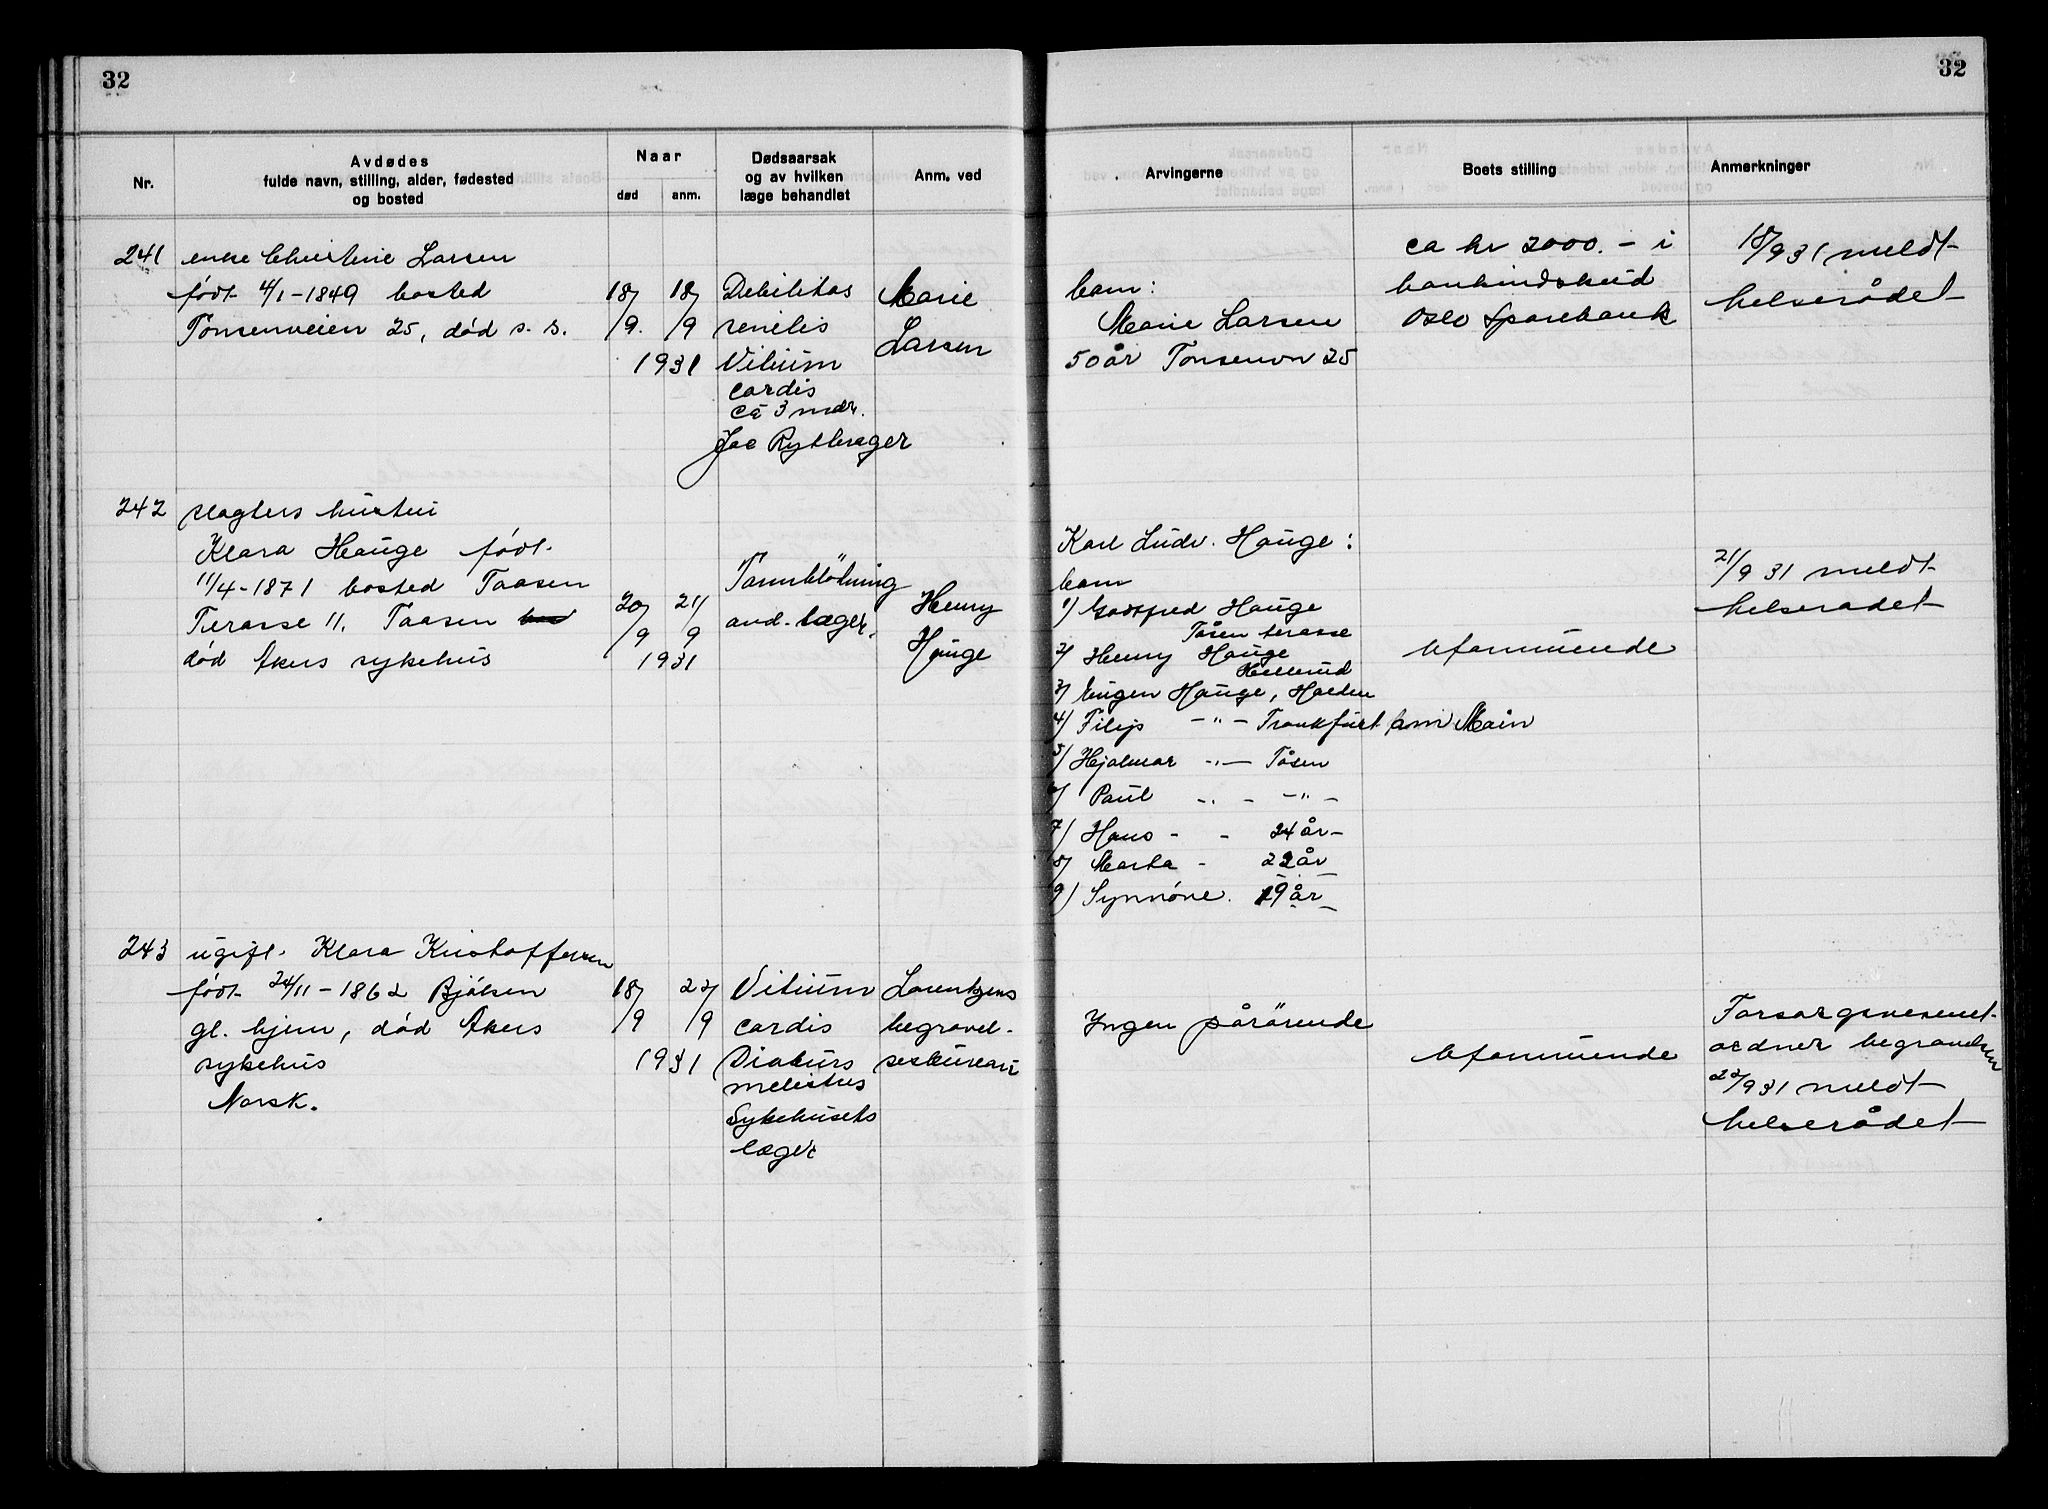 32
32
Nr.
Avdødes
fulde navn, stilling, alder, fødested
og bosted
Naar
død
anm.
Dødsaarsak
og av hvilken
læge behandlet
Anm. ved
Arvingerne
Boets stilling
Anmerkninger
241
enke Christine Larsen
født 4/1-1849 bosted
Tonsenveien 25, død s. s.
18/9.
18/9
1931
Debilitas
senilis
Vitium
cordis
ca 3 mdr.
Jac Rytterager
Marie
Larsen
barn:
Marie Larsen
50 år Tonsenvn 25
ca kr 2000.- i
bankindskud
Oslo Sparebank
18/9 31 meldt
helserådet
242
slagters hustru
Klara Hauge født
11/4-1871 bosted Taasen
Terasse 11. Taasen
død Akers sykehus
20/9
21/9
1931
Tarmblödning
avd. læger.
Henry
Hauge
Karl Ludv. Hauge:
barn
1) Godtfred Hauge
Tåsen terasse
2) Henry Hauge
Hellerud
3) Eugen Hauge, Halden
4) Filip -"- Frankfurt am Main
5) Hjalmar -"- Tåsen
6) Paul -"- -"-
7) Hans - - 24 år-
8) Marta - 22 år
9) Synnöve. 19 år
uformuende
21/9 31 meldt
helseradet
243
ugift. Klara Kristoffersen
født 24/11-1862 Bjölsen
gl. hjem, død Akers
sykehus
Norsk.
18/9
22/9
1931
Vitium
cordis
Diaburs
melistus
Sykehusets
læger
Lorentzens
begravel-
sesbureau
Yngen pårörende
uformuende
Forsorgsvesenet
ordner begravelsen
22/9 31 meldt
helserådet